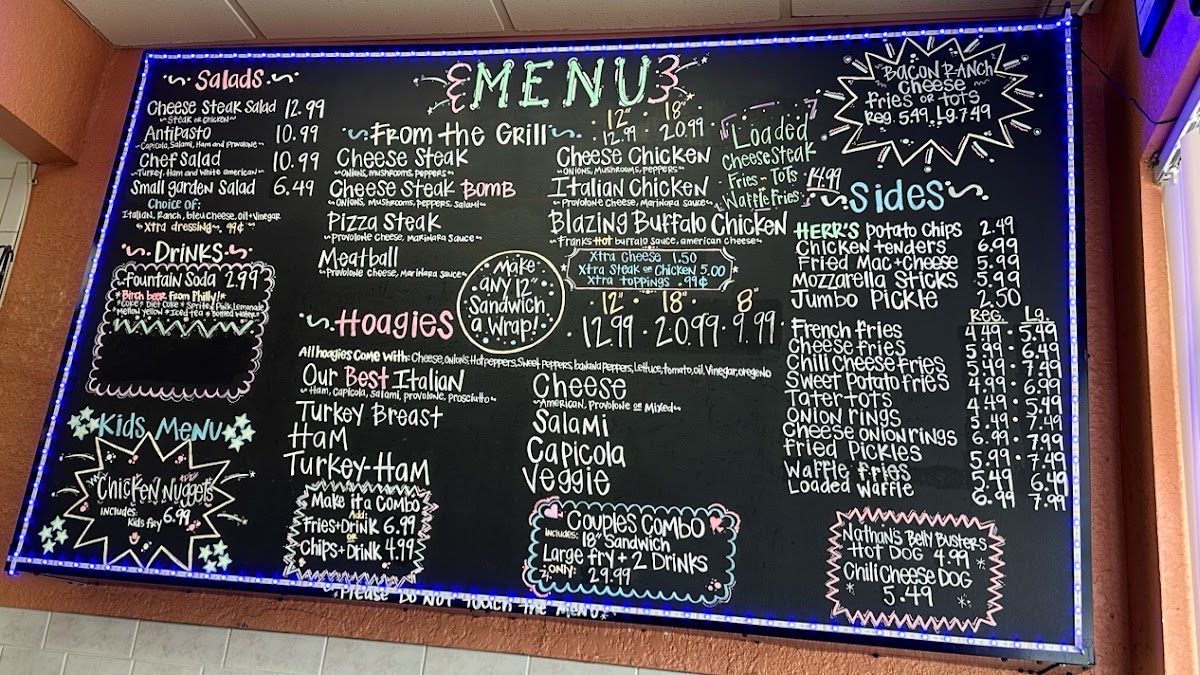 MENU
Salads
Cheese Steak Salad 12.99
~Steak or Chicken~
Antipasto 10.99
~Capicola, Salami, Ham and Provolone~
Chef Salad 10.99
~Turkey, Ham and White american~
Small garden Salad 6.49
Choice of:
Italian, Ranch, bleu cheese, oil + Vinegar
~ Xtra dressing ~ .99¢
Drinks
Fountain Soda 2.99
*Birch beer From Philly!*
*Coke * Diet Coke * Sprite * Pink Lemonade
*Mellow yellow * Iced tea * Bottled Water *
Kids Menu
Chicken Nuggets
includes: 6.99
Kids fry
From the Grill
12" · 18"
12.99 · 20.99
Cheese Steak
~Onions, Mushrooms, Peppers~
Cheese Steak BOMB
~Onions, Mushrooms, Peppers, Salami~
Pizza Steak
~Provolone Cheese, Marinara Sauce~
Meatball
~Provolone Cheese, Marinara Sauce~
Cheese Chicken
~Onions, Mushrooms, Peppers~
Italian Chicken
~Provolone Cheese, Marinara Sauce~
Blazing Buffalo Chicken
~Franks Hot buffalo sauce, american cheese~
Make
any 12"
Sandwich
a Wrap!
Xtra Cheese 1.50
Xtra Steak or Chicken 5.00
Xtra toppings .99¢
Hoagies
12" · 18" 8"
12.99 · 20.99 · 9.99
All hoagies Come With: Cheese, onions, Hot peppers, Sweet peppers, banana peppers, Lettuce, tomato, oil, Vinegar, oregeno
Our Best Italian
~Ham, Capicola, Salami, provolone, prosciutto~
Turkey Breast
Ham
Turkey-Ham
Cheese
~American, Provolone or Mixed~
Salami
Capicola
Veggie
Make it a Combo
Add:
Fries + Drink 6.99
or
Chips + Drink 4.99
Couples Combo
includes: 18" Sandwich
Large fry + 2 Drinks
ONLY: 29.99
Loaded
Cheese Steak
Fries - Tots 14.99
Waffle Fries
Bacon Ranch
Cheese
fries or tots
Reg. 5.49. Lg. 7.49
Sides
HERR'S Potato Chips 2.49
Chicken tenders 6.99
Fried Mac + Cheese 5.99
Mozzarella Sticks 5.99
Jumbo Pickle 2.50
Reg. Lg.
French fries 4.49 · 5.49
Cheese fries 5.99 · 6.49
Chili Cheese fries 5.49 · 7.49
Sweet Potato fries 4.99 · 6.99
Tater tots 4.49 · 5.49
Onion rings 5.49 · 7.49
Cheese onion rings 6.99 · 7.99
fried Pickles 5.99 · 7.49
Waffle fries 5.49 6.49
Loaded Waffle 6.99 7.99
Nathan's Belly Busters
Hot Dog 4.99
Chili Cheese Dog
5.49
~Please Do NOT Touch the MENU~